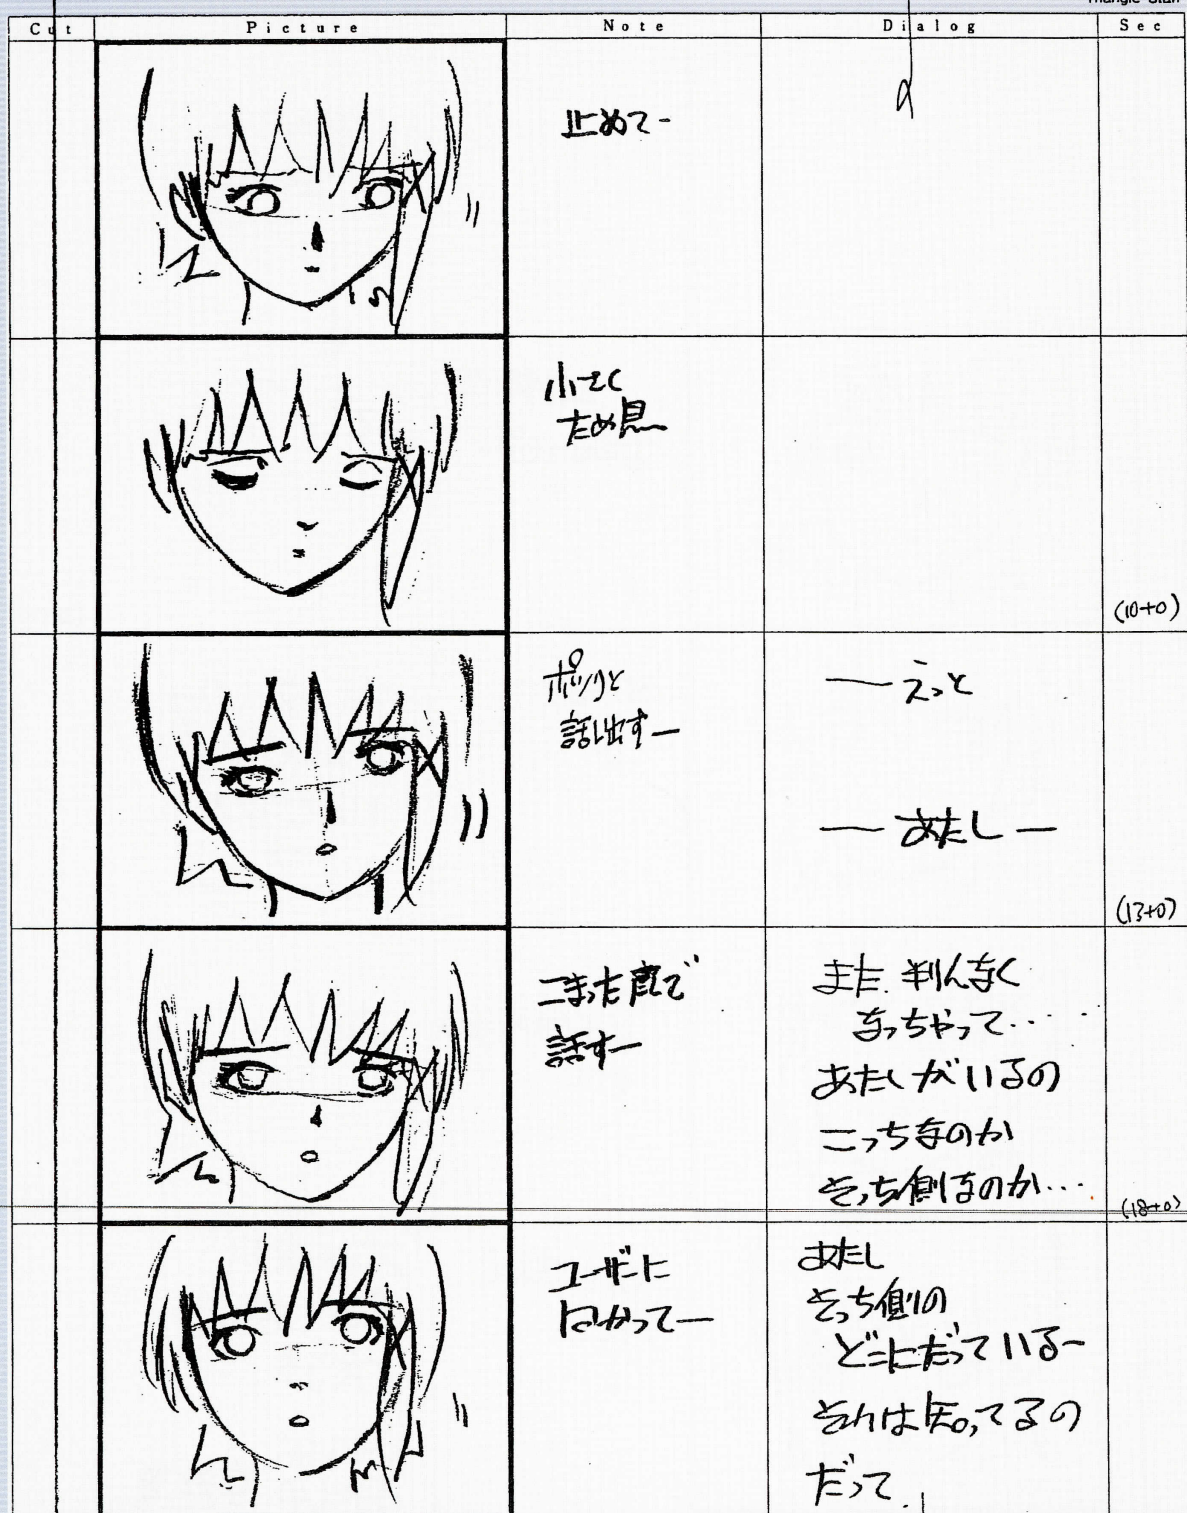 Triangle Staff
Cut Picture Note Dialog Sec
止めて-
小さく
ため息
(10+0)
ポツリと
話し出すー
── えっと
── あたし ─
(13+0)
こまった顔で
話すー
また 判んなく
なっちゃって・・・・
あたしがいるの
こっちなのか
そっち側なのか・・・
(18+0)
ユーザーに
向かってー
あたし
そっち側の
どこにだっている〜
それは知ってるの
だって